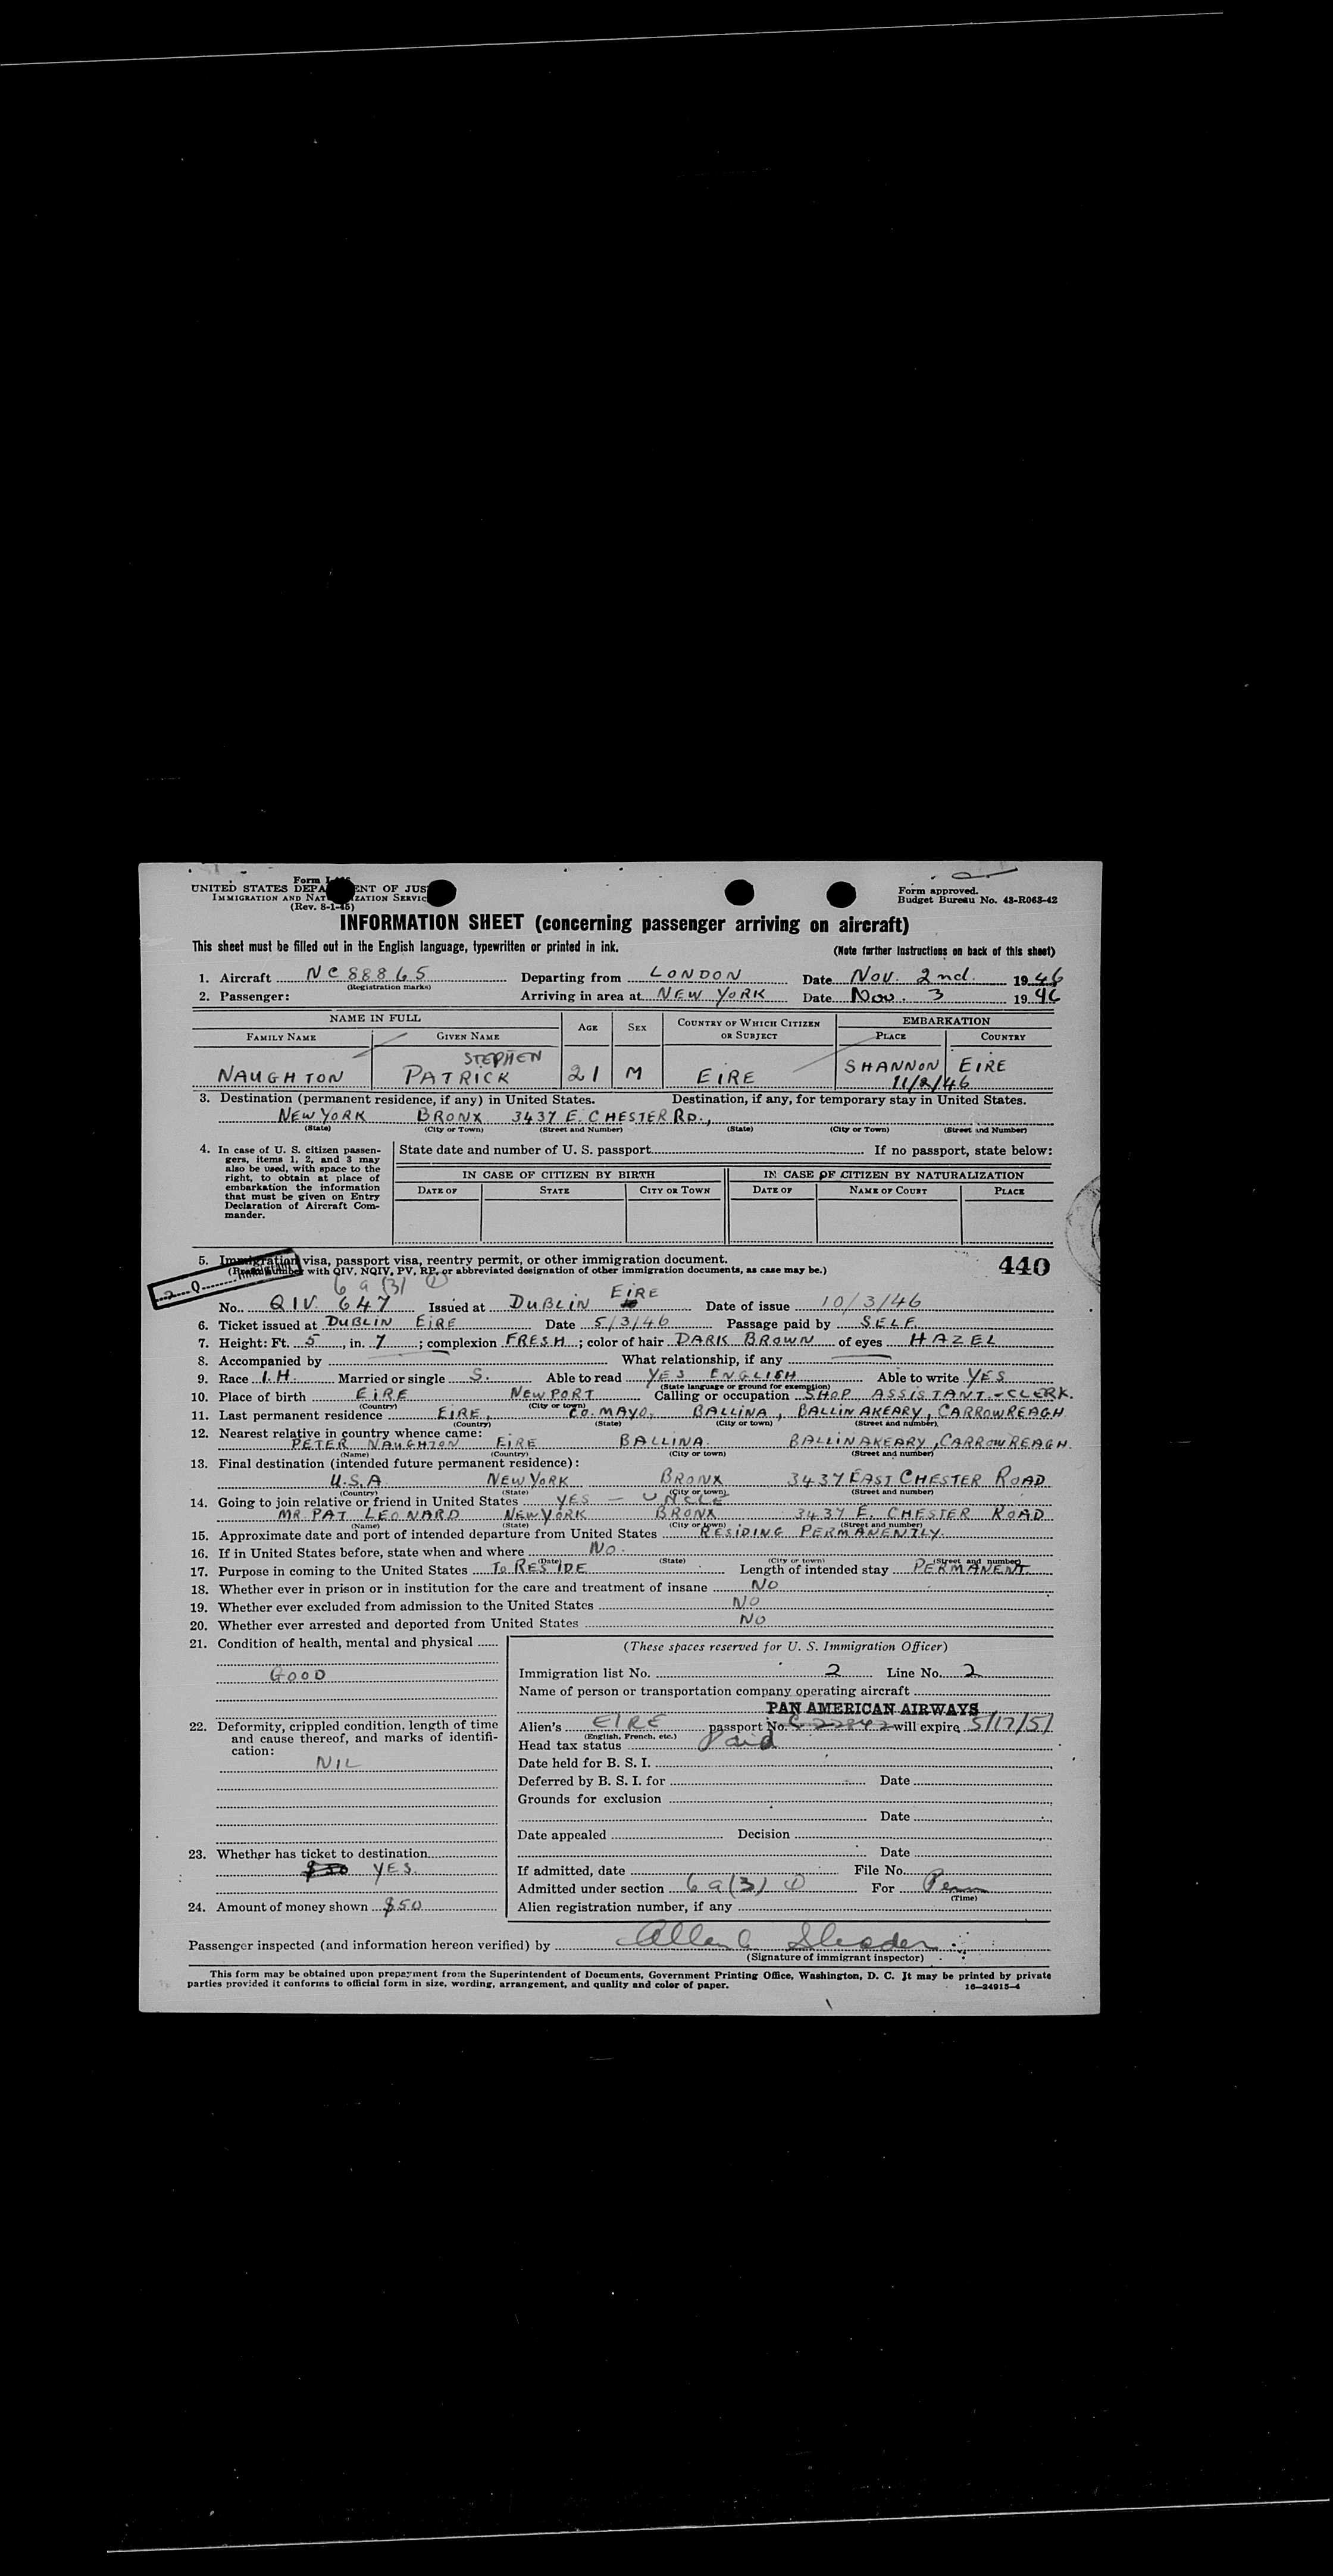 Form I-
UNITED STATES DEPARTMENT OF JUSTICE
IMMIGRATION AND NATURALIZATION SERVICE
(Rev. 8-1-45)
Form approved.
Budget Bureau No. 43-R063-42
INFORMATION SHEET (concerning passenger arriving on aircraft)
This sheet must be filled out in the English language, typewritten or printed in ink. (Note further instructions on back of this sheet)
1. Aircraft NC 88865 Departing from LONDON Date Nov. 2nd. 1946
(Registration marks)
2. Passenger: Arriving in area at NEW YORK Date Nov. 3 1946
NAME IN FULL AGE SEX COUNTRY OF WHICH CITIZEN OR SUBJECT EMBARKATION
FAMILY NAME GIVEN NAME PLACE COUNTRY
STEPHEN
NAUGHTON PATRICK 21 M EIRE SHANNON EIRE
11/2/46
3. Destination (permanent residence, if any) in United States. Destination, if any, for temporary stay in United States.
NEW YORK BRONX 3437 E. CHESTER RD.,
(State) (City or Town) (Street and Number) (State) (City or Town) (Street and Number)
4. In case of U. S. citizen passengers, items 1, 2, and 3 may also be used, with space to the right, to obtain at place of embarkation the information that must be given on Entry Declaration of Aircraft Commander.
State date and number of U. S. passport If no passport, state below:
IN CASE OF CITIZEN BY BIRTH IN CASE OF CITIZEN BY NATURALIZATION
DATE OF STATE CITY OR TOWN DATE OF NAME OF COURT PLACE
5. Immigration visa, passport visa, reentry permit, or other immigration document. 440
with QIV, NQIV, PV, RP, or abbreviated designation of other immigration documents, as case may be.)
6 a (3) 1
No. QIV 647 Issued at DUBLIN EIRE Date of issue 10/3/46
6. Ticket issued at DUBLIN EIRE Date 5/3/46 Passage paid by SELF
7. Height: Ft. 5, in. 7; complexion FRESH; color of hair DARK BROWN of eyes HAZEL
8. Accompanied by What relationship, if any
9. Race I.H. Married or single S. Able to read YES ENGLISH Able to write YES
(State language or ground for exemption)
10. Place of birth EIRE NEWPORT Calling or occupation SHOP ASSISTANT - CLERK.
(Country) (City or town)
11. Last permanent residence EIRE, CO. MAYO, BALLINA, BALLINAKEARY, CARROWREAGH
(Country) (State) (City or town) (Street and number)
12. Nearest relative in country whence came:
PETER NAUGHTON EIRE BALLINA. BALLINAKEARY, CARROWREAGH.
(Name) (Country) (City or town) (Street and number)
13. Final destination (intended future permanent residence):
U.S.A. NEW YORK BRONX 3437 EAST CHESTER ROAD
(Country) (State) (City or town) (Street and number)
14. Going to join relative or friend in United States YES - UNCLE
MR. PAT LEONARD NEW YORK BRONX 3437 E. CHESTER ROAD
(Name) (State) (City or town) (Street and number)
15. Approximate date and port of intended departure from United States RESIDING PERMANENTLY.
16. If in United States before, state when and where NO.
(Date) (State) (City or town) (Street and number)
17. Purpose in coming to the United States TO RESIDE Length of intended stay PERMANENT
18. Whether ever in prison or in institution for the care and treatment of insane NO
19. Whether ever excluded from admission to the United States NO
20. Whether ever arrested and deported from United States NO
21. Condition of health, mental and physical
GOOD
22. Deformity, crippled condition, length of time and cause thereof, and marks of identification:
NIL
23. Whether has ticket to destination
YES.
24. Amount of money shown $50
(These spaces reserved for U. S. Immigration Officer)
Immigration list No. 2 Line No. 2
Name of person or transportation company operating aircraft
PAN AMERICAN AIRWAYS
Alien's EIRE passport No. C 22842 will expire 5/17/51
(English, French, etc.)
Head tax status Paid
Date held for B. S. I.
Deferred by B. S. I. for Date
Grounds for exclusion
Date
Date appealed Decision
Date
If admitted, date File No.
Admitted under section 6 a (3) 1 For Perm
(Time)
Alien registration number, if any
Passenger inspected (and information hereon verified) by Allen
(Signature of immigrant inspector)
This form may be obtained upon prepayment from the Superintendent of Documents, Government Printing Office, Washington, D. C. It may be printed by private
parties provided it conforms to official form in size, wording, arrangement, and quality and color of paper. 16—24915-4